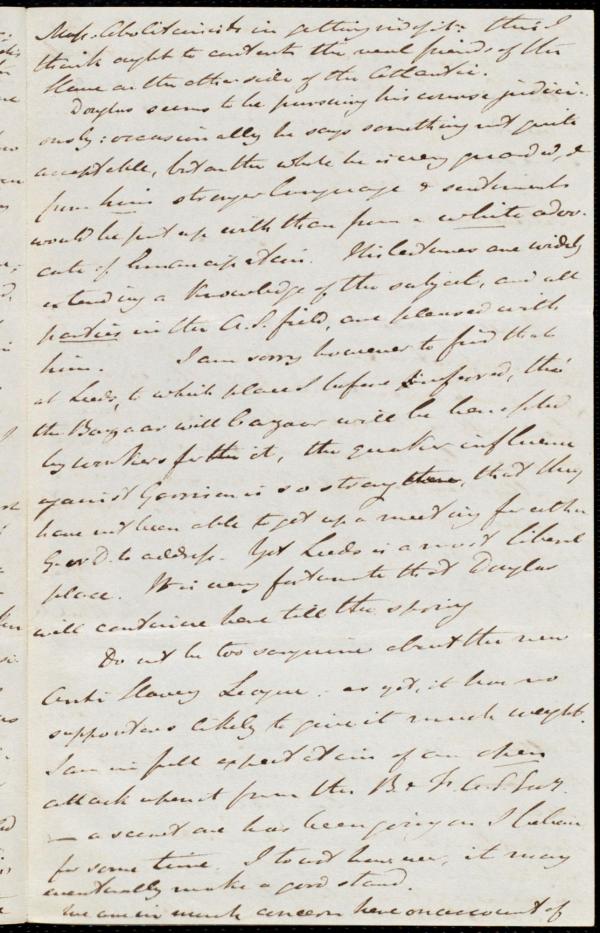 Mass. Abolitionists in getting rid of it: this I
think ought to content the real friends of the
Slave on the other side of the Atlantic.
Douglas seems to be pursuing his course judici-
ously: occasionally he says something not quite
acceptable, but on the whole he is very guarded, &
from him stronger language & sentiments
would be put up with than from a white advo-
cate of Emancipation. His lectures are widely
extending a knowledge of the subject, and all
parties in the A.S. field, are pleased with
him. I am sorry however to find that
at Leeds, to which place I before referred, tho'
the Bazaar will be
by workers for it, the quaker influence
against Garrison is so strong there, that they
have not been able to get up a meeting for either
G. or D. to address. Yet Leeds is a most liberal
place. It is very fortunate that Douglas
will continue here till the spring
Do not be too sanguine about the new
Anti Slavery League: as yet, it has no
supporters likely to give it much weight.
I am in full expectation of an open
attack upon it from the B & F. A.S. Socy.
— a secret one has been going on I believe
for some time. I trust however, it may
eventually make a good stand.
We are in much concern here on account of